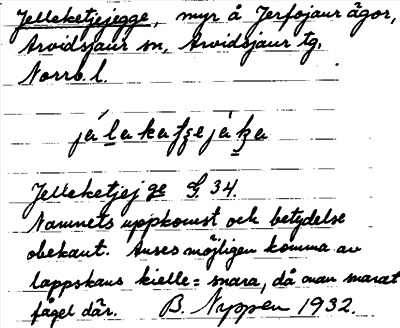 Jelleketjejegge, myr å Jerfojaur ägor,
Arvidsjaur sn, Arvidsjaur tg.
Norrb. l.
Jelleketjejge G. 34.
Namnets uppkomst och betydelse
obekant. Anses möjligen komma av
lappskans kielle = snara, då man snarat
fågel där. B. Nyppen 1932.